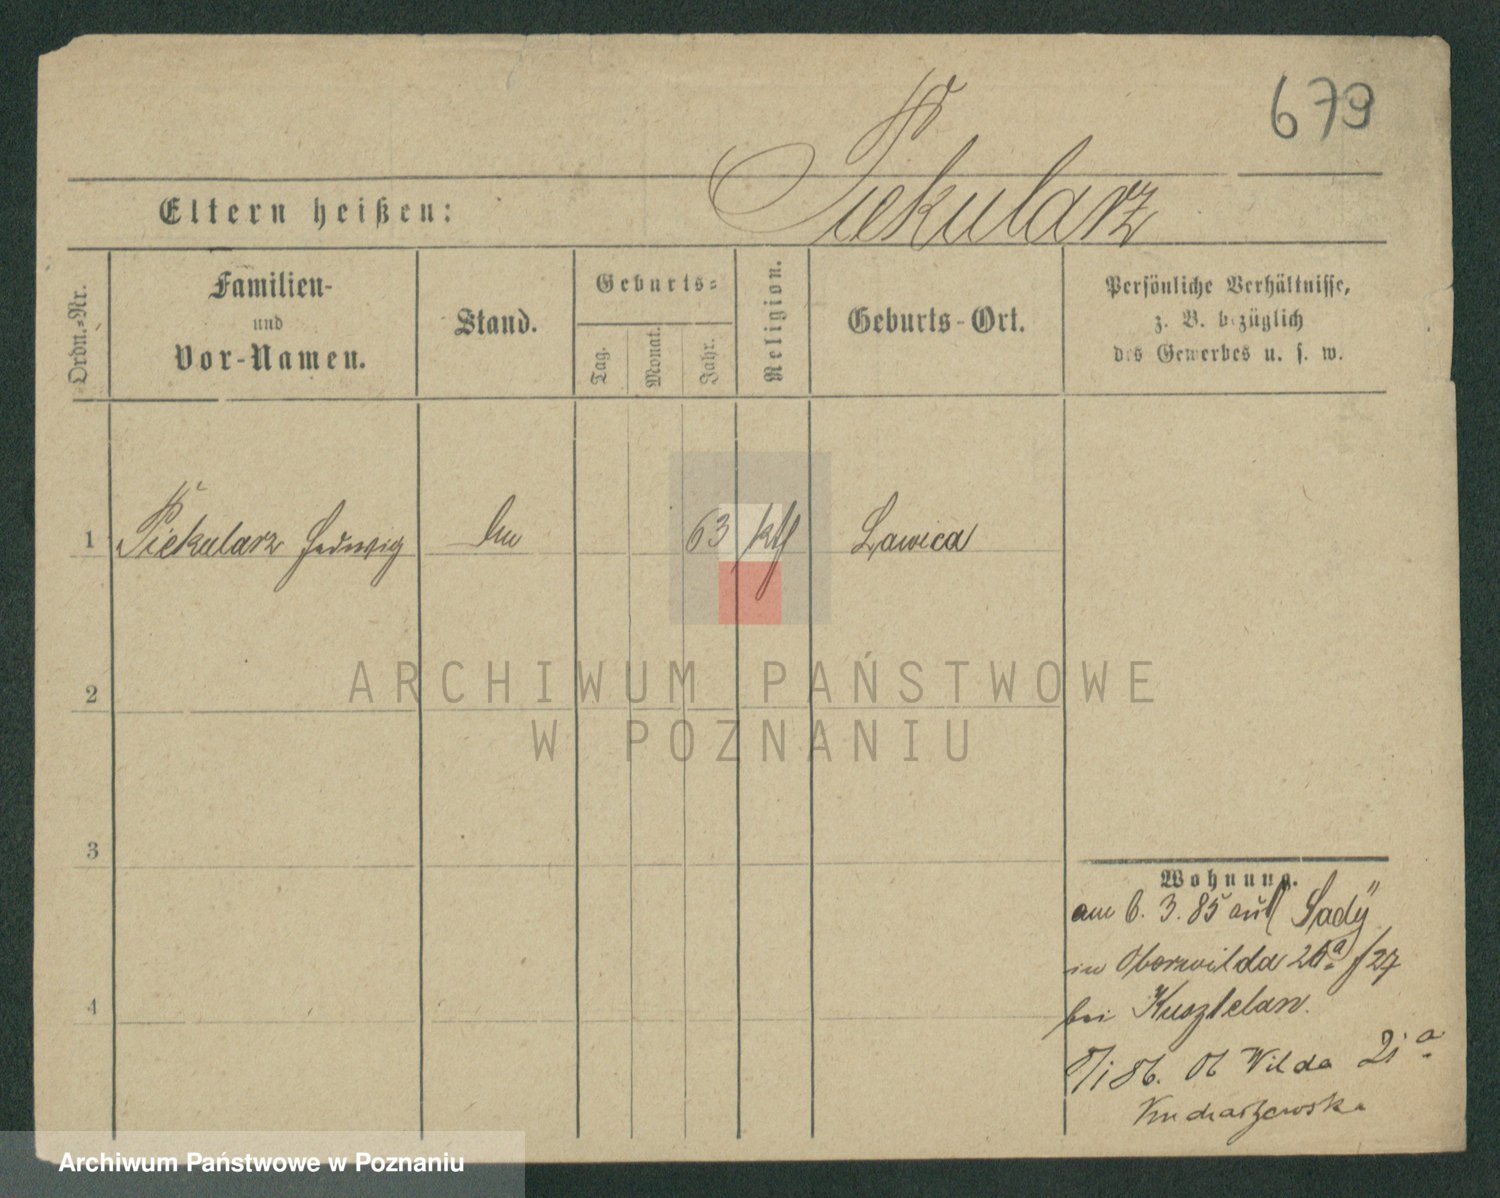 679
Eltern heißen: Piekularz
Ordn.-Nr.
Familien-
und
Vor-Namen.
Stand.
Geburts-
Tag.
Monat.
Jahr.
Religion.
Geburts-Ort.
Persönliche Verhältnisse,
z. B. bezüglich
des Gewerbes u. s. w.
1 Piekularz Hedwig 63 ktl Lawica
2
3
4
ARCHIWUM PAŃSTWOWE
W POZNANIU
Wohnung.
am 6. 3. 85 aus Sady
in Oberwilda 26a /27
bei Kusztelan.
86. Ob Wilda 21a
Archiwum Państwowe w Poznaniu